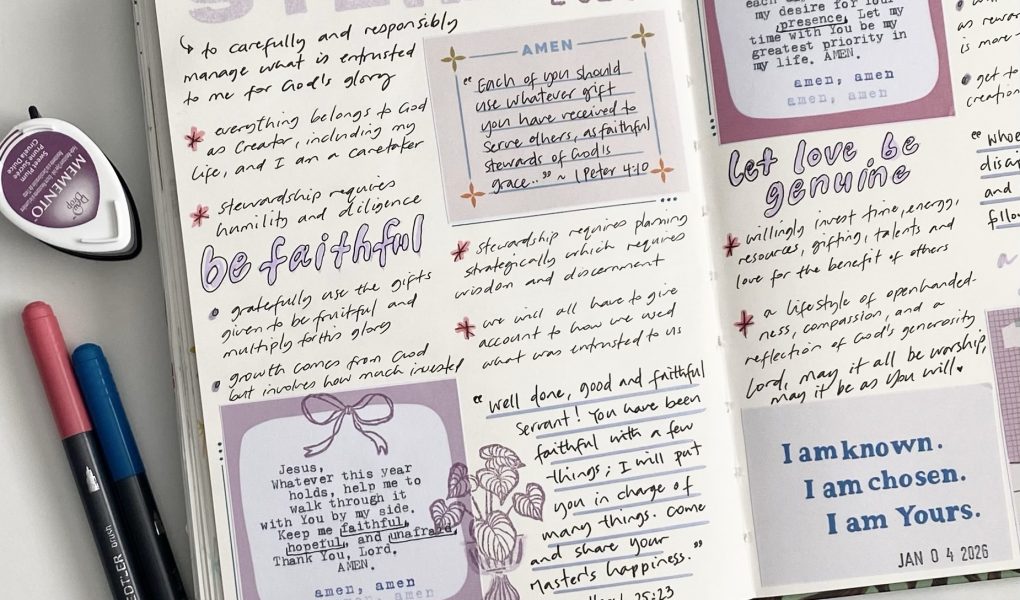 ↳ to carefully and responsibly
manage what is entrusted
to me for God's glory
* everything belongs to God
as Creator, including my
life, and I am a caretaker
* stewardship requires
humility and diligence
be faithful
• gratefully use the gifts
given to be fruitful and
multiply for His glory
• growth comes from God
but involves how much invested
Jesus,
Whatever this year
holds, help me to
walk through it
with You by my side.
Keep me faithful,
hopeful, and unafraid.
Thank You, Lord.
AMEN.
amen, amen
amen, amen
AMEN
"Each of you should
use whatever gift
you have received to
serve others, as faithful
stewards of God's
grace..." ~ 1 Peter 4:10
* stewardship requires planning
strategically which requires
wisdom and discernment
* we will all have to give
account to how we used
what was entrusted to us
"Well done, good and faithful
servant! You have been
faithful with a few
things; I will put
you in charge of
many things. Come
and share your
Master's happiness."
25:23
my desire for Your
presence. Let my
time with You be my
greatest priority in
my life. AMEN.
amen, amen
amen, amen
Let love be
genuine
* willingly invest time, energy,
resources, gifting, talents and
love for the benefit of others
* a lifestyle of openhanded-
ness, compassion, and a
reflection of God's generosity
Lord, may it all be worship,
may it be as You will
I am known.
I am chosen.
I am Yours.
JAN 04 2026
as rewar
is more
• get to
creation
"whoe
and
MEMENTO
Sweet Plum
Prune Sucrée
Ciruela Dulce